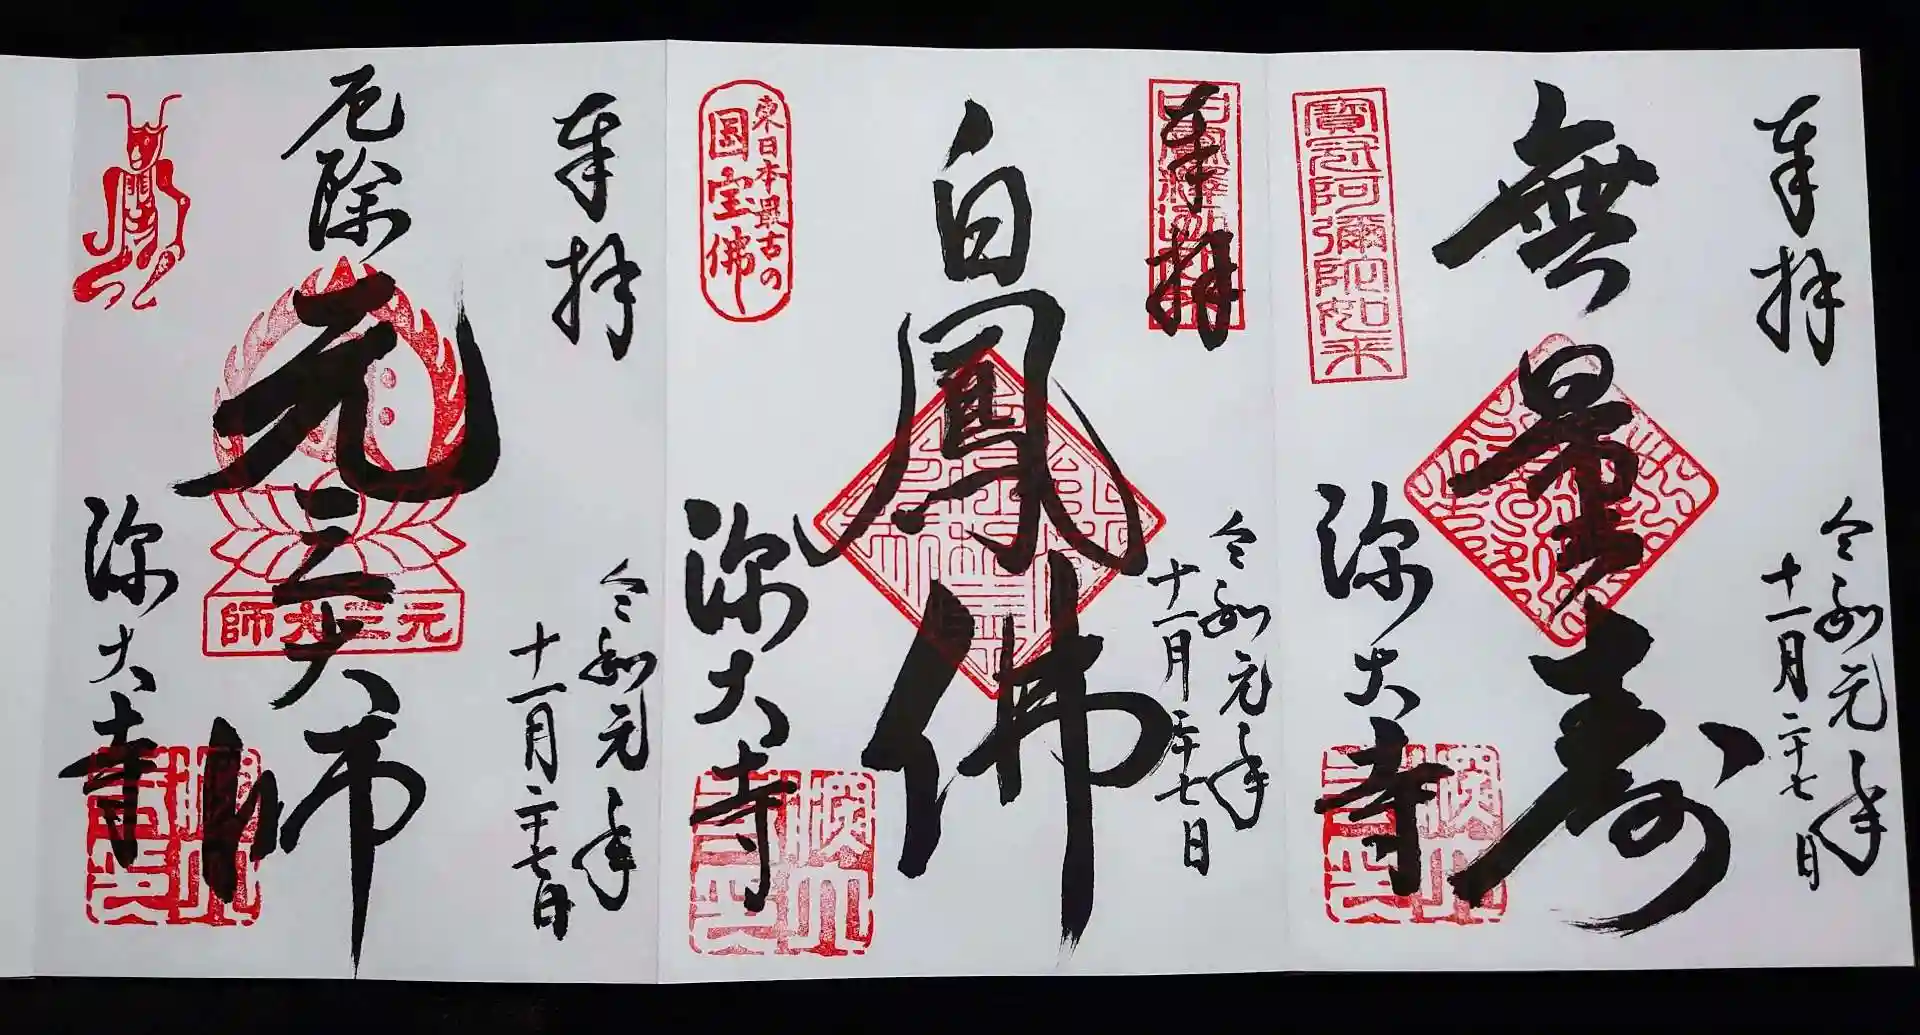 奉拝
令和元年
十一月二十七日
無量寿
寶冠阿彌陀如来
深大寺
奉拝
令和元年
十一月二十七日
白鳳佛
東日本最古の
国宝佛
深大寺
奉拝
令和元年
十一月二十七日
厄除
元三大師
元三大師
深大寺